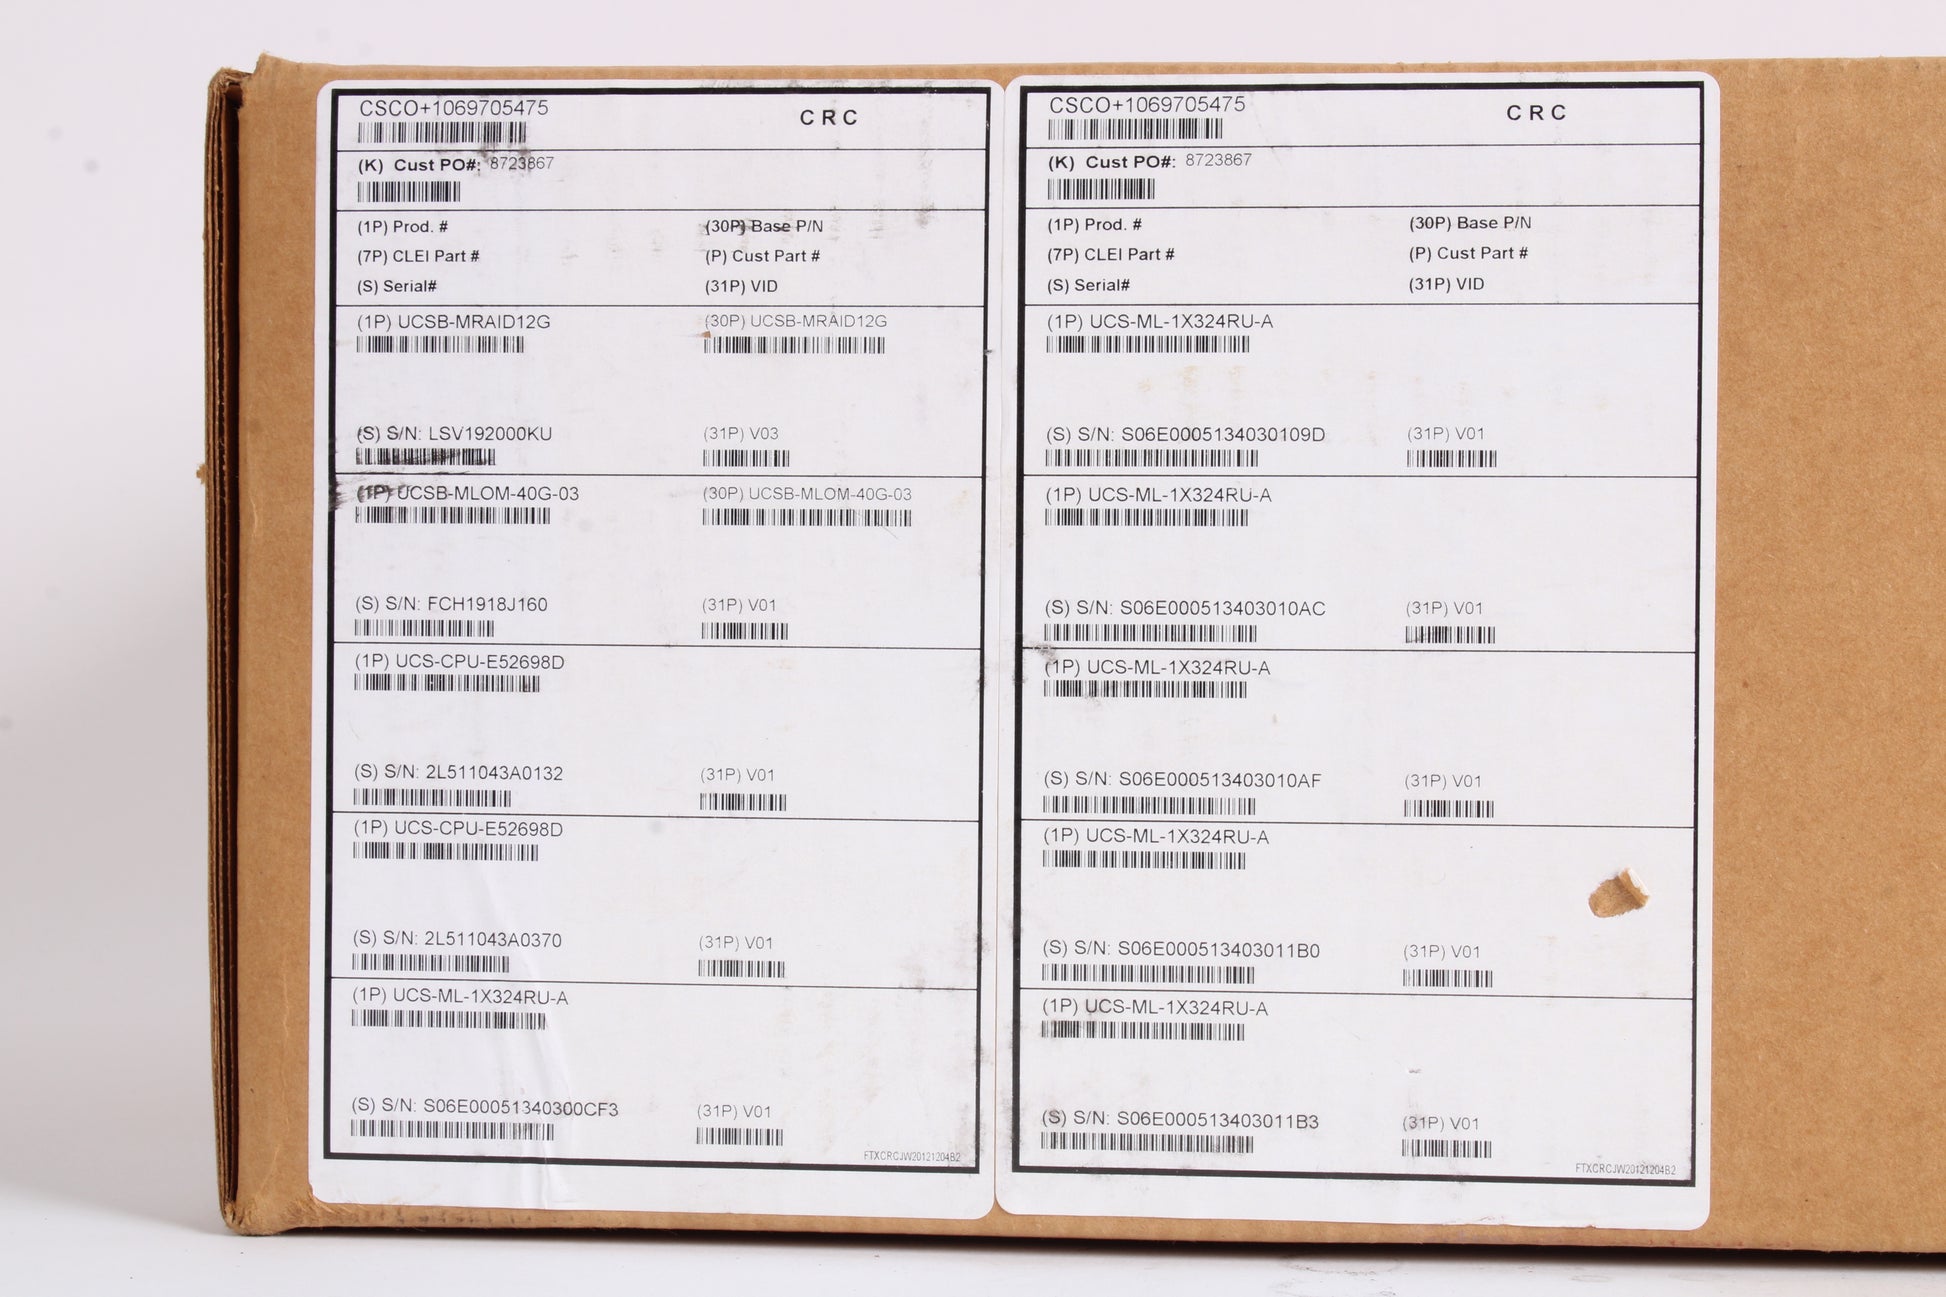 CSCO+1069705475
CRC
(K) Cust PO#: 8723867
(1P) Prod. # (30P) Base P/N
(7P) CLEI Part # (P) Cust Part #
(S) Serial# (31P) VID
(1P) UCSB-MRAID12G (30P) UCSB-MRAID12G
(S) S/N: LSV192000KU (31P) V03
(1P) UCSB-MLOM-40G-03 (30P) UCSB-MLOM-40G-03
(S) S/N: FCH1918J160 (31P) V01
(1P) UCS-CPU-E52698D
(S) S/N: 2L511043A0132 (31P) V01
(1P) UCS-CPU-E52698D
(S) S/N: 2L511043A0370 (31P) V01
(1P) UCS-ML-1X324RU-A
(S) S/N: S06E00051340300CF3 (31P) V01
FTXCRCJW20121204B2
CSCO+1069705475
CRC
(K) Cust PO#: 8723867
(1P) Prod. # (30P) Base P/N
(7P) CLEI Part # (P) Cust Part #
(S) Serial# (31P) VID
(1P) UCS-ML-1X324RU-A
(S) S/N: S06E0005134030109D (31P) V01
(1P) UCS-ML-1X324RU-A
(S) S/N: S06E000513403010AC (31P) V01
(1P) UCS-ML-1X324RU-A
(S) S/N: S06E000513403010AF (31P) V01
(1P) UCS-ML-1X324RU-A
(S) S/N: S06E000513403011B0 (31P) V01
(1P) UCS-ML-1X324RU-A
(S) S/N: S06E000513403011B3 (31P) V01
FTXCRCJW20121204B2